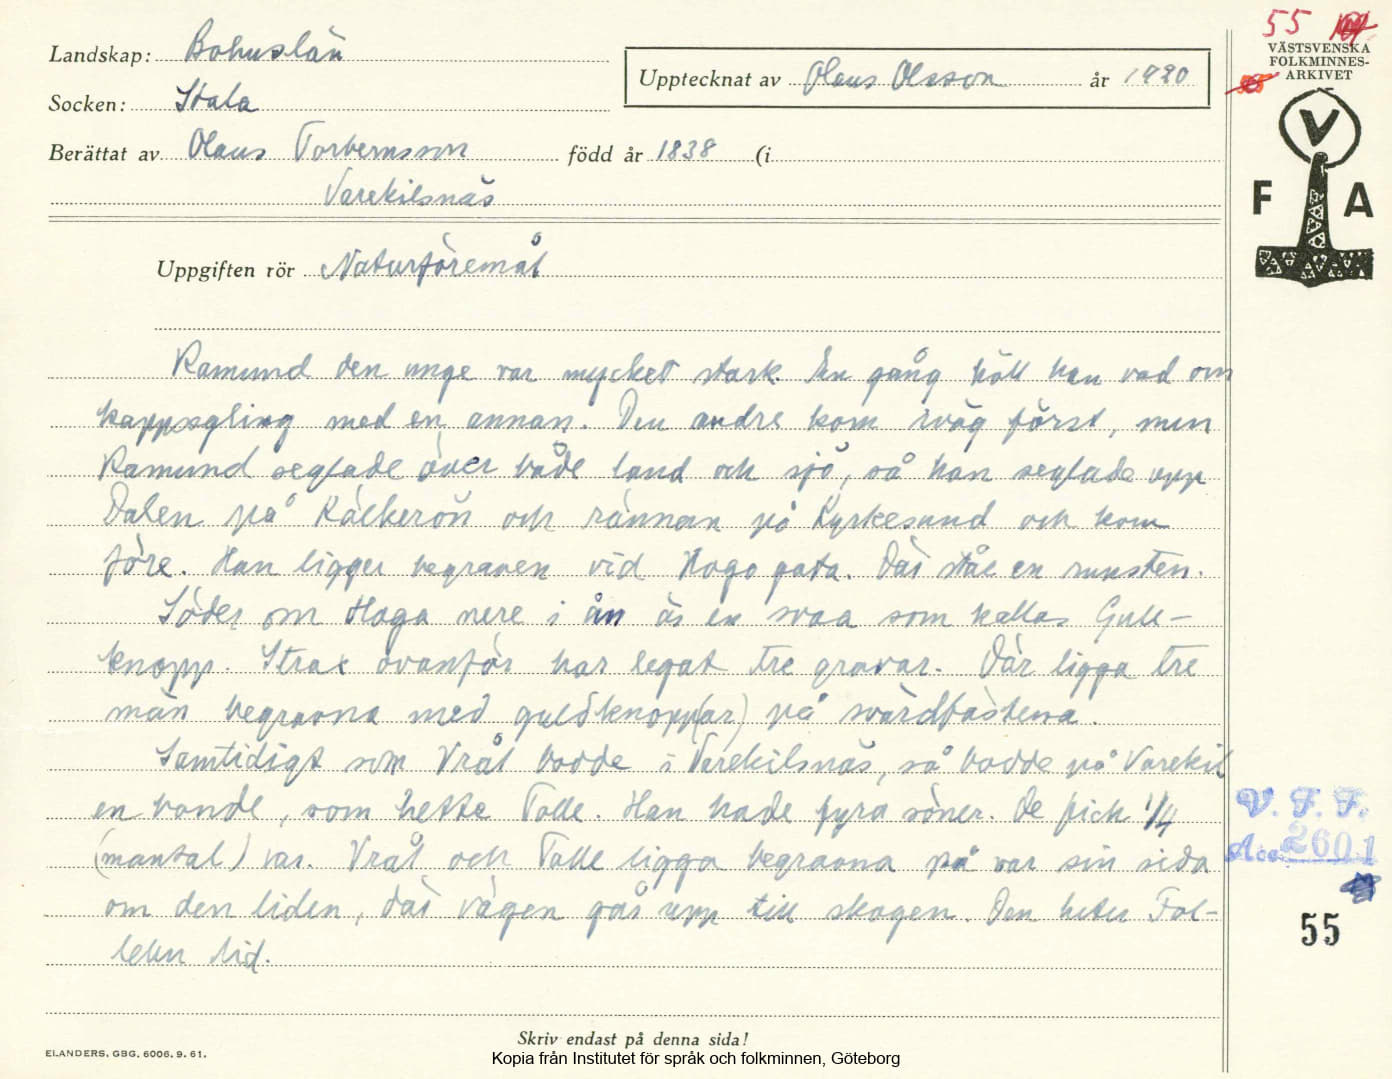 Landskap: Bohuslän
Socken: Stala
Berättat av Olaus Torbernsson född år 1838 (i
Varekilsnäs
Upptecknat av Olaus Olsson år 1920
55
VÄSTSVENSKA
FOLKMINNES-
ARKIVET
V
F A
Uppgiften rör Naturföremål
Ramund den unge var mycket stark. En gång höll han vad om
kappsegling med en annan. Den andre kom iväg först, men
Ramund seglade över både land och sjö, så han seglade upp
Dalen på Kälkerön och rännan på Kyrkesund och kom
före. Han ligger begraven vid Hoga gata. Där står en runsten.
Söder om Hoga nere i ån är en svaa som kallas Gull-
knopp. Strax ovanför har legat tre gravar. Där ligga tre
män begravna med guldknopp(ar) på svärdfästena.
Samtidigt som Vrål bodde i Varekilsnäs, så bodde på Varekil
en bonde, som hette Tolle. Han hade fyra söner. De fick 1/4
(mantal) var. Vrål och Tolle ligga begravna på var sin sida
om den liden, där vägen går upp till skogen. Den heter Fol-
lekn lid.
V. F. F.
Acc. 2601
55
Skriv endast på denna sida!
ELANDERS, GBG. 6006. 9. 61.
Kopia från Institutet för språk och folkminnen, Göteborg